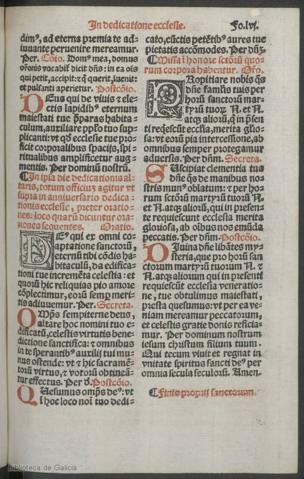 In dedicatione ecclesie. Fo.lvj.
dimᵒ, ad eterna premia te ad-
iuuante peruenire mereamur.
Per. Cõio. Domᵒ mea, domus
oratiõis vocabiť dicit dñs: in ea ois
qui petit, accipit: et q̃ querit, inuenit: et
et pulsanti aperietur. Postcõio.
DEus qui de viuis et ele-
ctis lapidibᵒ eternum
maiestati tue p̃paras habita-
culum, auxiliare pplo tuo sup-
plicanti: vt qð ecclesie tue profi-
cit corporalibus spacijs, spi-
ritualibus amplificetur aug-
mentis. Per dominũ nostrũ.
In ipsa die dedicationis al-
taris, totum officiuz agitur vt
supra in anniuersario dedica-
tionis ecclesie, preter oratio-
nes: loco quarũ dicuntur ora-
tiones sequentes. Oratio.
DEᵒ qui ex omni co-
aptatione sanctorũ,
eternũ tibi cõdis ha-
bitaculũ, da edificati-
oni tue incremẽta celestia: et
quorũ hic reliquias pio amore
cõplectimur, eorũ semp meri-
tis adiuuemur. Per. Secreta.
OMps sempiterne deus,
altare hoc nomini tuo e-
dificatũ, celestis virtutis bene-
dictione sanctifica: et omnibus
in te sperantibᵒ auxilij tui mu-
nus ostende: vt et hic sacramẽ-
torũ virtus, et votorũ obtinea-
tur effectus. Per. Postcõio.
QUesumus omps deᵒ: vt
in hoc loco noī tuo dedi-
cato, cũctis petẽtibᵒ aures tue
pietatis accõmodes. Per dñz.
Missa ĩ honorẽ sctõrũ quo-
rum corpora habentur. Oro.
PRopitiare nobis q̃s
dñe famul̃ tuis per
horũ sanctorũ mar-
tyrũ tuor. N. et N.
atqz aliorũ, q̃ in p̃sen-
ti requiescũt ecclesia, merita glio-
sa: vt eorũ pia intercessione, ab
omnibus semper protegamur
aduersis. Per dñm. Secreta.
SUscipiat clementia tua
dñe q̃s de manibus no-
stris munᵒ oblatum: et per ho-
rum sctõrũ martyrũ tuorũ N.
et N. atqz aliorũ, qui in presen-
te requiescunt ecclesia merita
gloriosa, ab oĩbus nos emũda
peccatis. Per dñm. Postcõio.
DIuina dñe libãtes my-
steria, que pro horũ san-
ctorum martyrũ tuorum N. et
N. atqz aliorũ qui in presenti
requiescũt ecclesia veneratio-
ne, tue obtulimus maiestati,
presta quesumus: vt per ea ve-
niam mereamur peccatorum,
et celestis gratie donis reficia-
mur. Per dominum nostrum
iesum christum filium tuum.
Qui tecum viuit et regnat in
vnitate spiritus sancti deᵒ per
omnia secula seculorũ. Amen.
Finis proprij sanctorum.
Biblioteca de Galicia